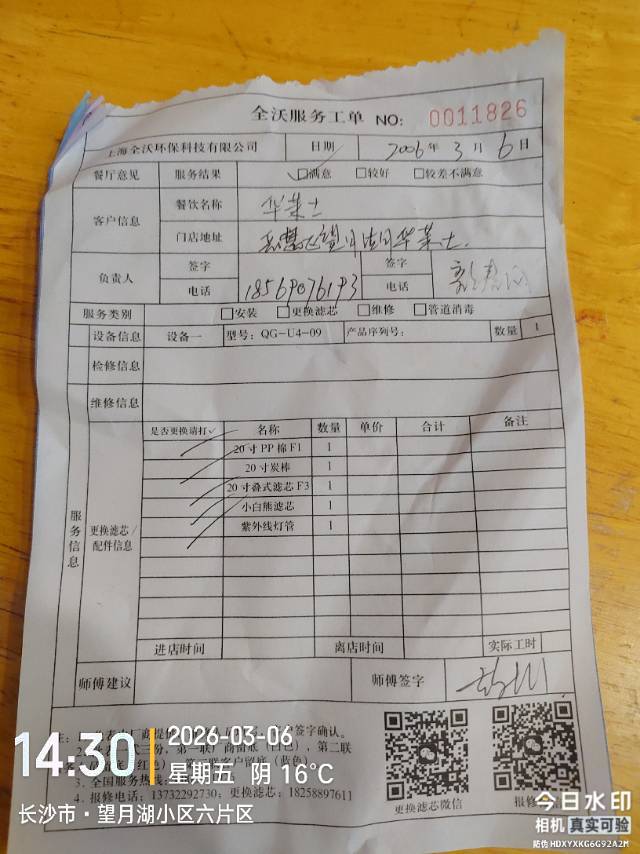 全沃服务工单 NO: 0011826
上海全沃环保科技有限公司 日期 2006年 3月 6日
餐厅意见 服务结果 ☑满意 □较好 □较差不满意
客户信息 餐饮名称 华莱士
门店地址 华莱士
负责人 签字 签字
电话 18569076193 电话
服务类别 □安装 □更换滤芯 □维修 □管道消毒
设备信息 设备一 型号: QG-U4-09 产品序列号: 数量 1
检修信息
维修信息
服务信息
更换滤芯/配件信息
是否更换请打✓ 名称 数量 单价 合计 备注
✓ 20寸PP棉F1 1
✓ 20寸炭棒 1
✓ 20寸叠式滤芯F3 1
✓ 小白熊滤芯 1
✓ 紫外线灯管 1
进店时间 离店时间 实际工时
师傅建议 师傅签字
签字确认。
第一联厂商留底(白色), 第二联
留底(蓝色)
3. 全国服务热线:
4. 报修电话: 13732292730; 更换滤芯: 18258897611
更换滤芯微信
报修
14:30 2026-03-06
星期五 阴 16℃
长沙市·望月湖小区六片区
今日水印
相机 真实可验
防伪 HDXYXKG6G92A2M